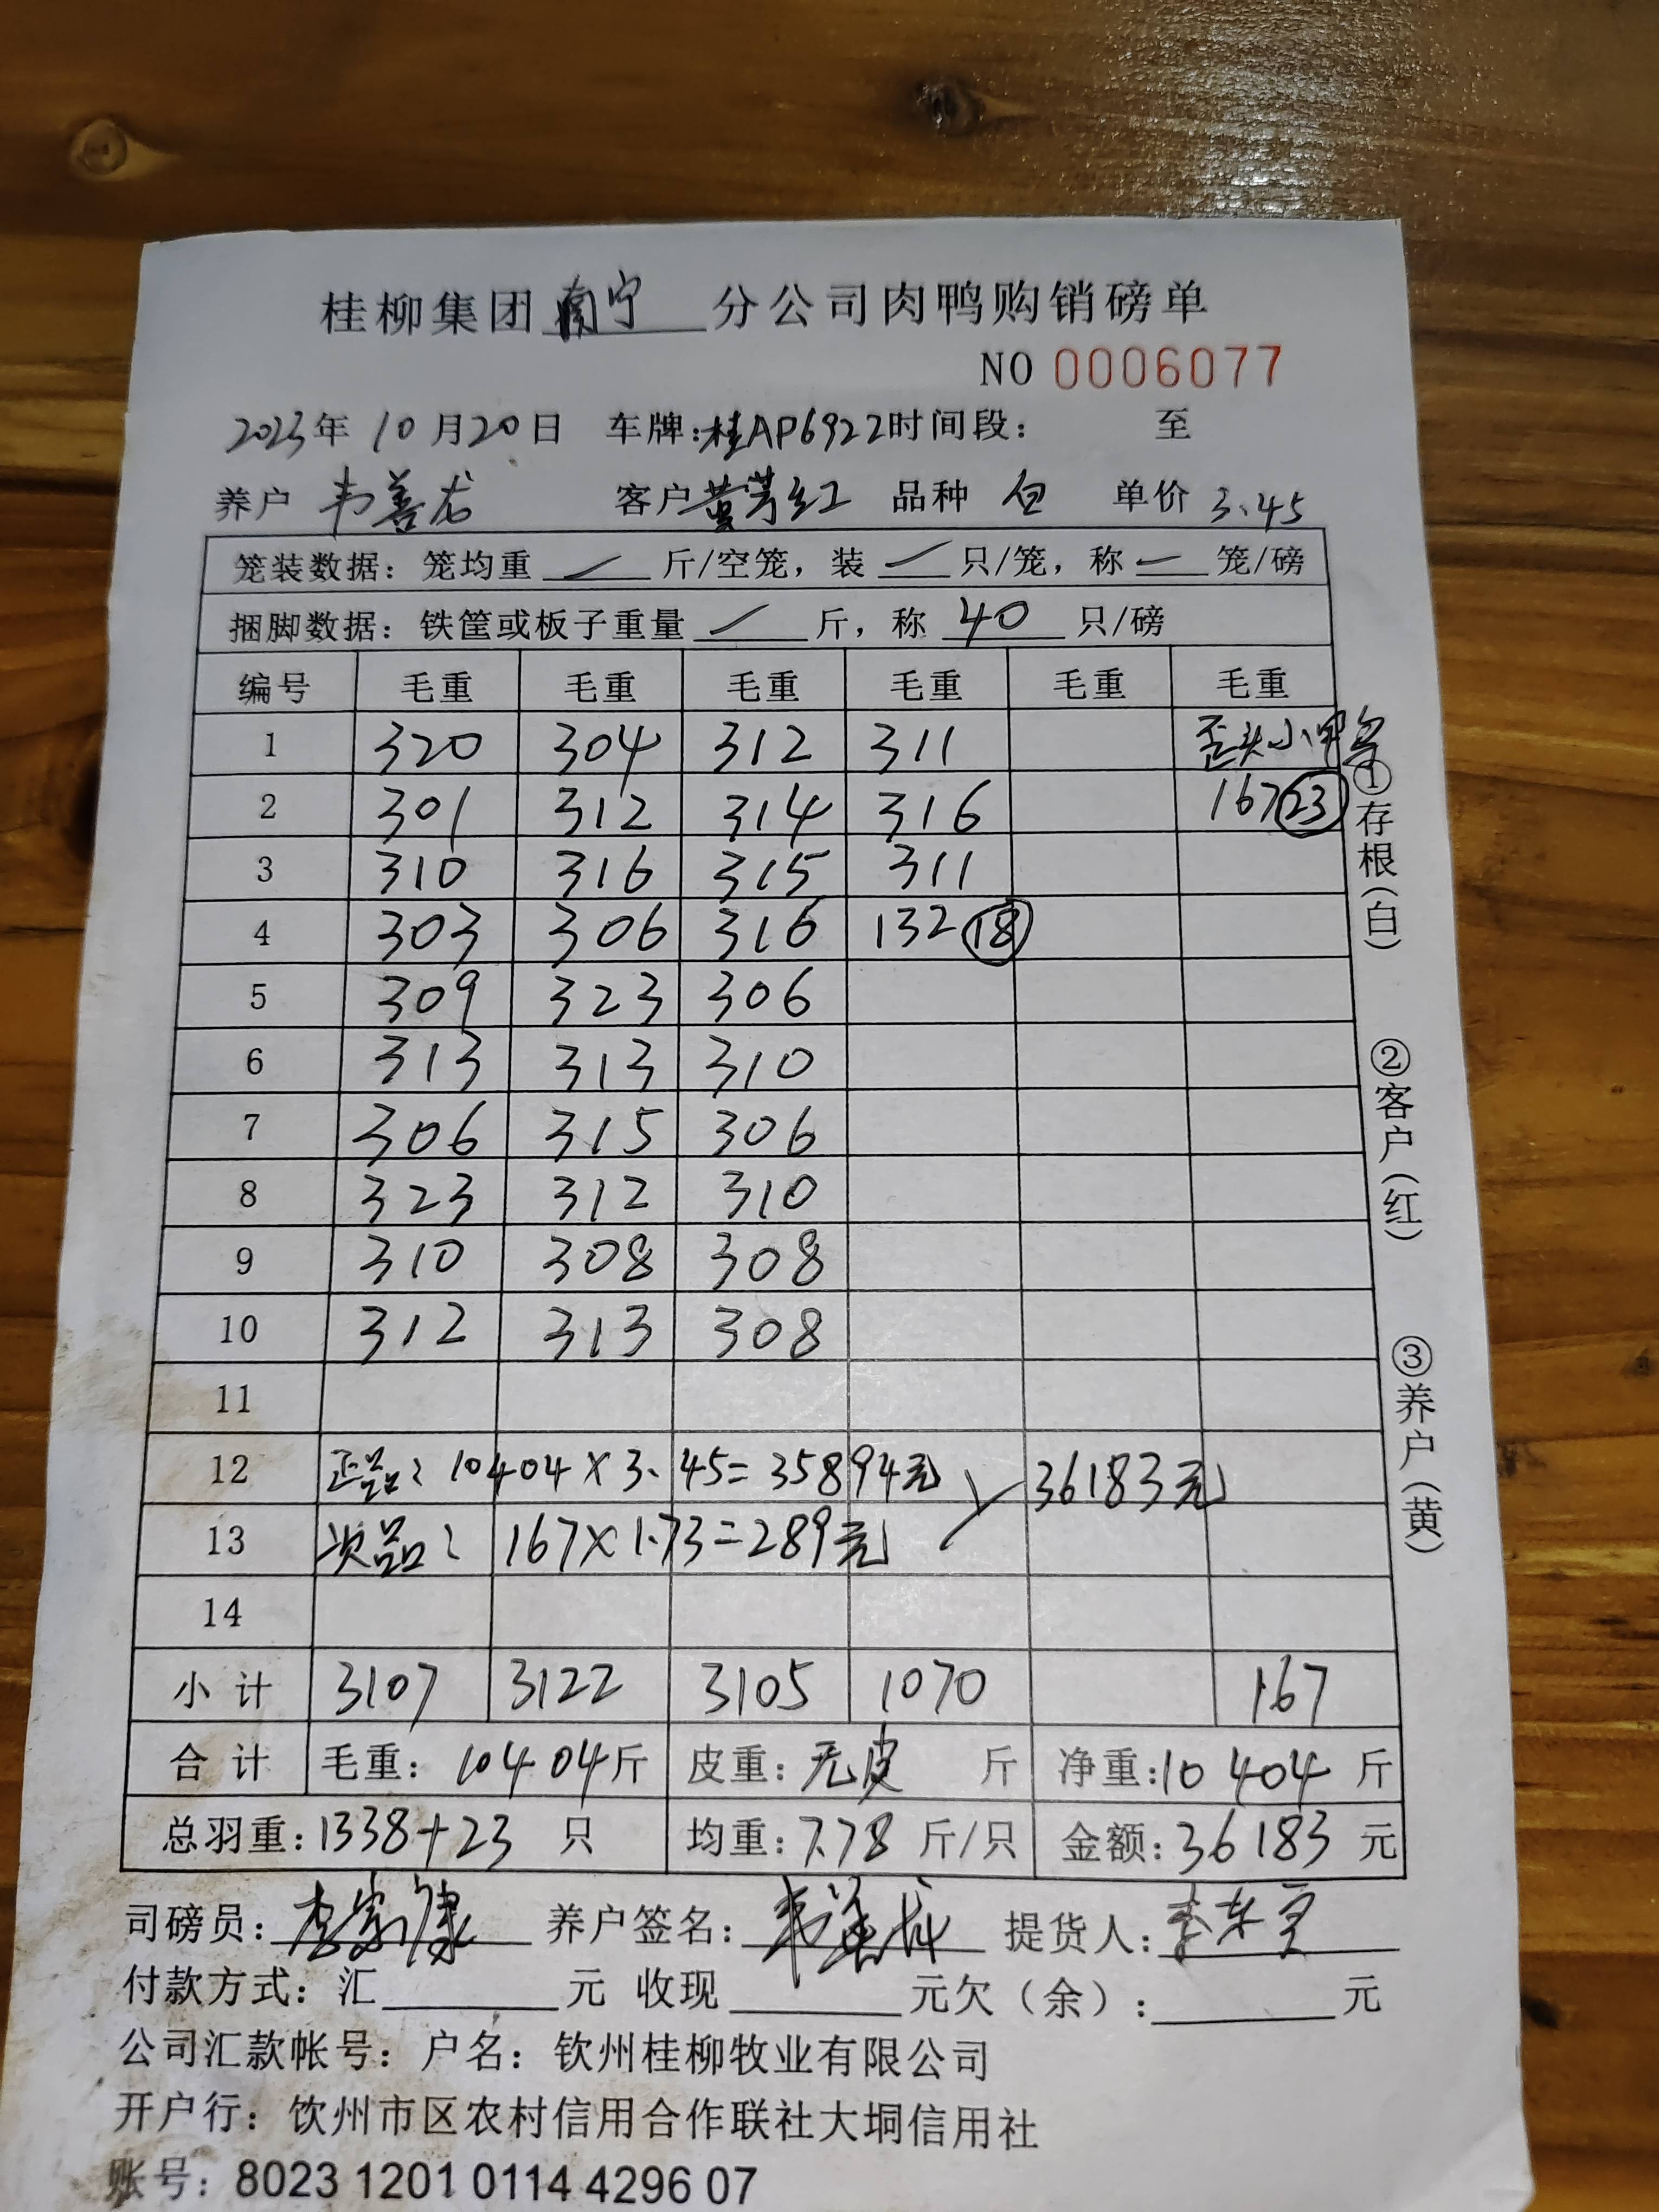 桂柳集团南宁分公司肉鸭购销磅单
NO 0006077
2023年10月20日 车牌:桂AP6922时间段： 至
养户 韦善龙 客户 黄芳红 品种 白 单价 3.45
笼装数据：笼均重 / 斤/空笼，装 / 只/笼，称 / 笼/磅
捆脚数据：铁筐或板子重量 / 斤，称 40 只/磅
编号 毛重 毛重 毛重 毛重 毛重 毛重
1 320 304 312 311 歪头小鸭
2 301 312 314 316 167 23
3 310 316 315 311
4 303 306 316 132 18
5 309 323 306
6 313 313 310
7 306 315 306
8 323 312 310
9 310 308 308
10 312 313 308
11
12 正品: 10404×3.45=35894元 36183元
13 次品: 167×1.73=289元
14
小计 3107 3122 3105 1070 167
合计 毛重：10404斤 皮重：无皮 斤 净重:10404 斤
总羽重:1338+23 只 均重:7.78 斤/只 金额:36183 元
司磅员: 养户签名: 韦善龙 提货人:
付款方式：汇 元 收现 元欠（余）： 元
公司汇款帐号：户名：钦州桂柳牧业有限公司
开户行：钦州市区农村信用合作联社大垌信用社
账号：8023 1201 0114 4296 07
①存根(白)
②客户(红)
③养户(黄)